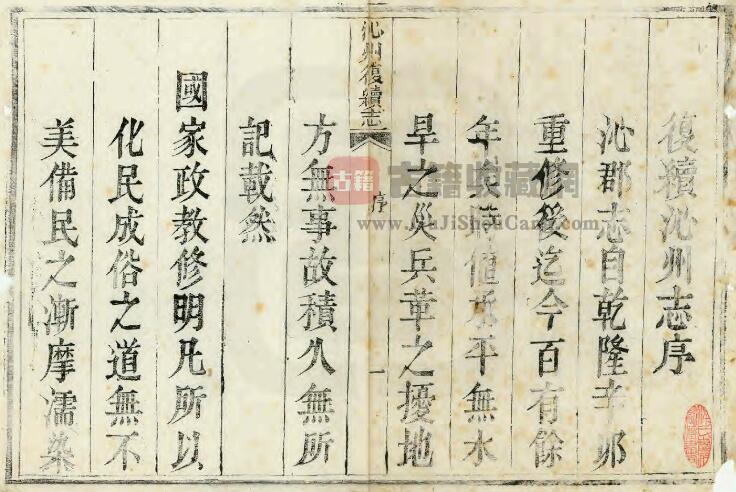 復續沁州志序
沁郡志自乾隆辛卯
重修後迄今百有餘
年矣時值承平無水
旱之災兵革之擾地
方無事故積久無所
記載然
國家政教修明凡所以
化民成俗之道無不
美備民之漸摩濡染
沁州復續志
序
一
古籍
古籍收藏網
www.GuJiShouCang.com